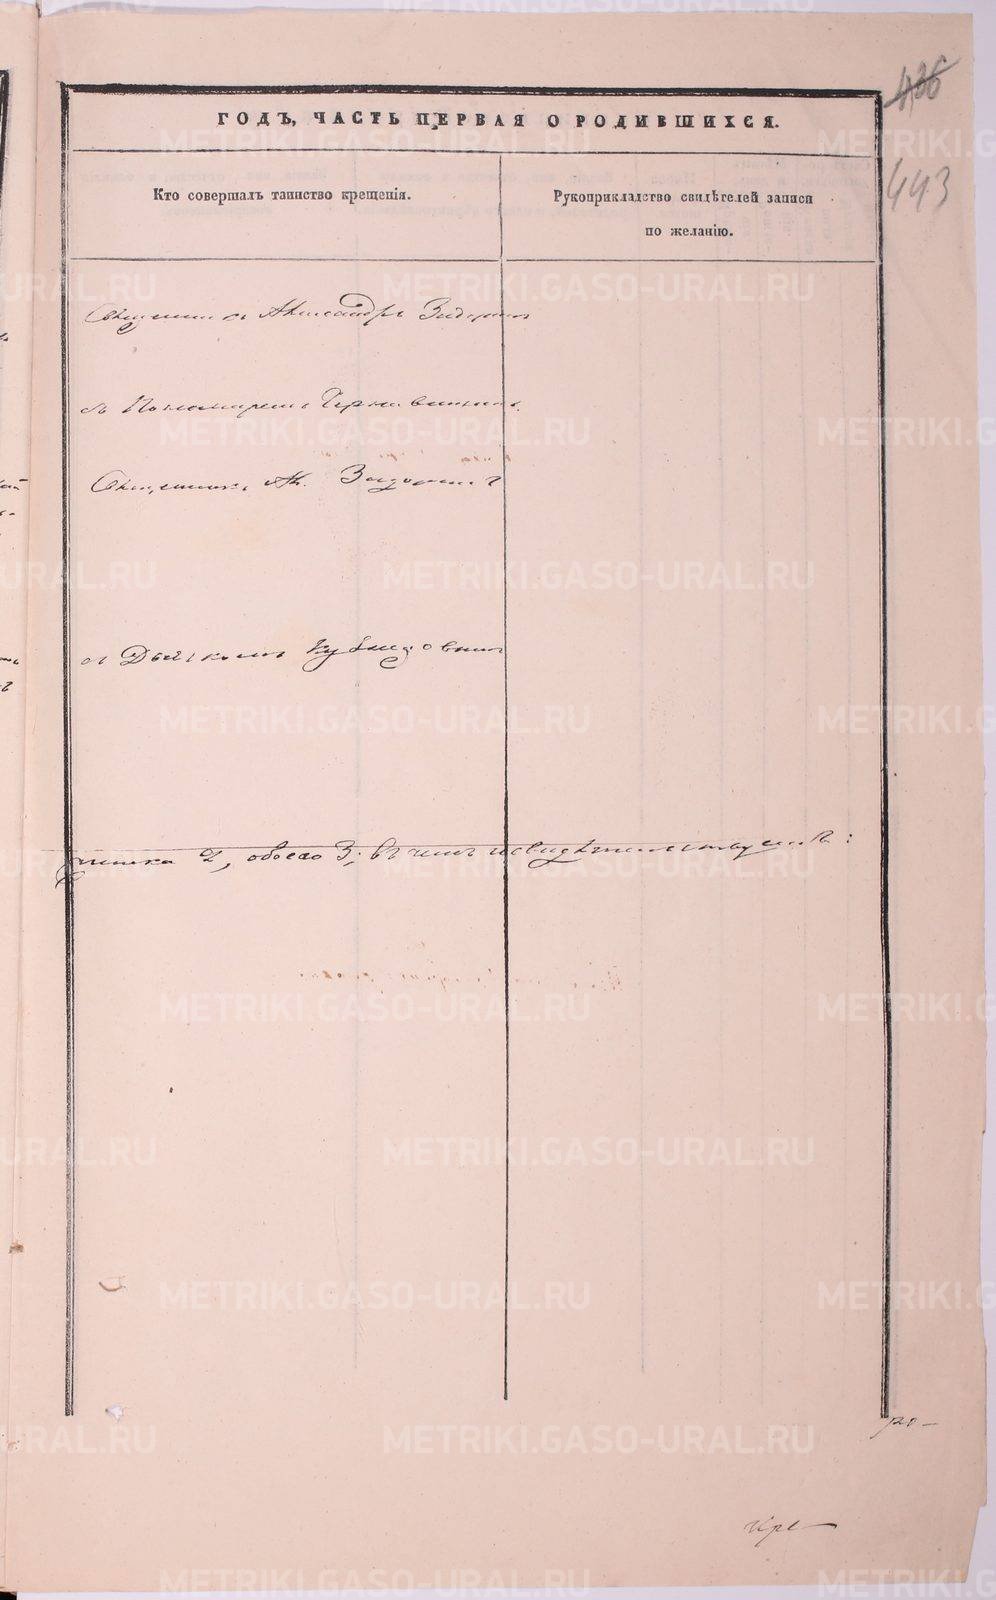 436
ГОДЪ, ЧАСТЬ ПЕРВАЯ О РОДИВШИХСЯ.
443
Кто совершалъ таинство крещенія.
Рукоприкладство свидѣтелей записи
по желанію.
Священникъ Александръ Задоринъ
съ Пономаремъ
Священникъ Ал. Задоринъ
съ Дьячкомъ
2, обоего 3; въ чемъ и свидѣтельствуемъ:
METRIKI.GASO-URAL.RU